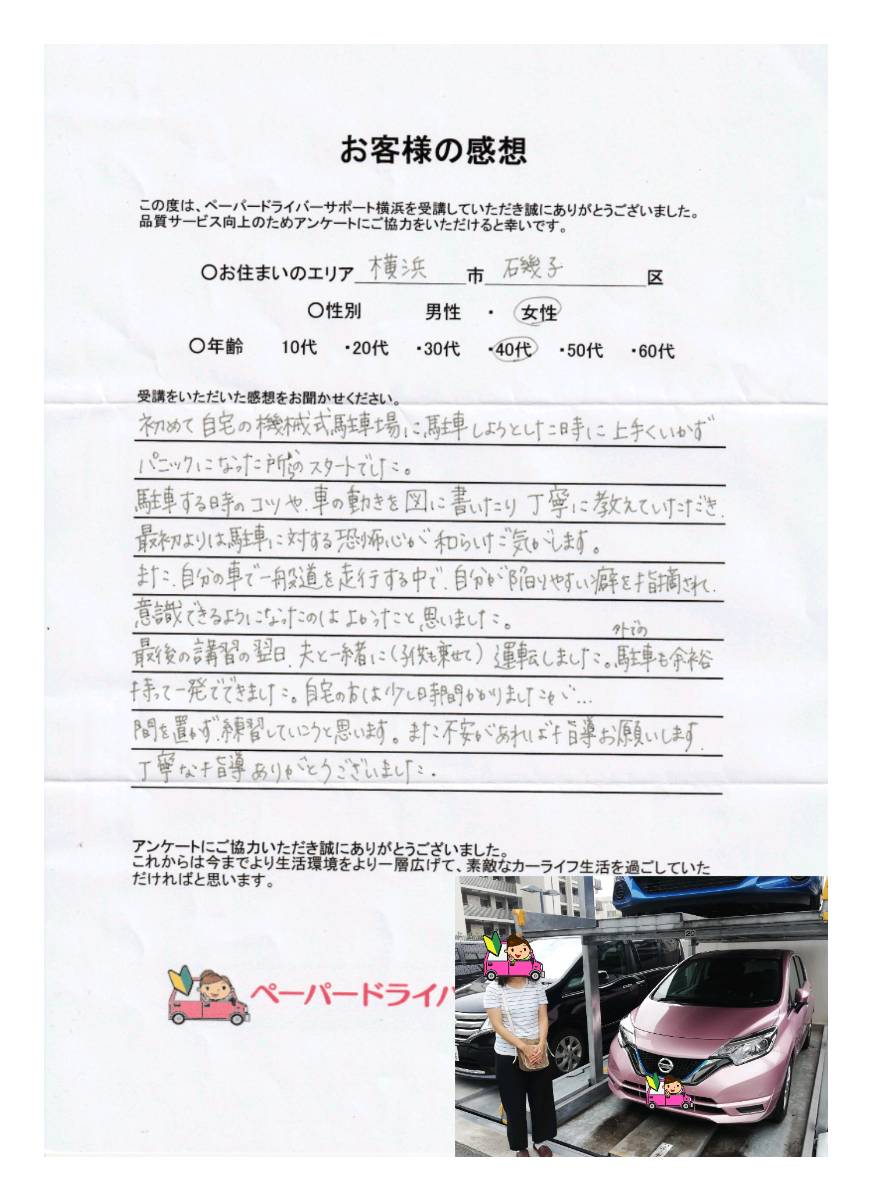 お客様の感想
この度は、ペーパードライバーサポート横浜を受講していただき誠にありがとうございました。
品質サービス向上のためアンケートにご協力をいただけると幸いです。
○お住まいのエリア 横浜 市 磯子 区
○性別 男性 ・ 女性
○年齢 10代 ・20代 ・30代 ・40代 ・50代 ・60代
受講をいただいた感想をお聞かせください。
初めて自宅の機械式駐車場に駐車しようとした時に上手くいかず
パニックになった所からのスタートでした。
駐車する時のコツや、車の動きを図に書いたり丁寧に教えていただき、
最初よりは駐車に対する恐怖心が和らいだ気がします。
また、自分の車で一般道を走行する中で、自分が陥りやすい癖を指摘され、
意識できるようになったのはよかったと思いました。
最後の講習の翌日、夫と一緒に(子供も乗せて)運転しました。外での駐車も余裕
持って一発でできました。自宅の方は少し時間かかりましたが…
間を置かず練習していこうと思います。また不安があれば指導お願いします。
丁寧な指導ありがとうございました。
アンケートにご協力いただき誠にありがとうございました。
これからは今までより生活環境をより一層広げて、素敵なカーライフ生活を過ごしていた
だければと思います。
ペーパードライバ
20